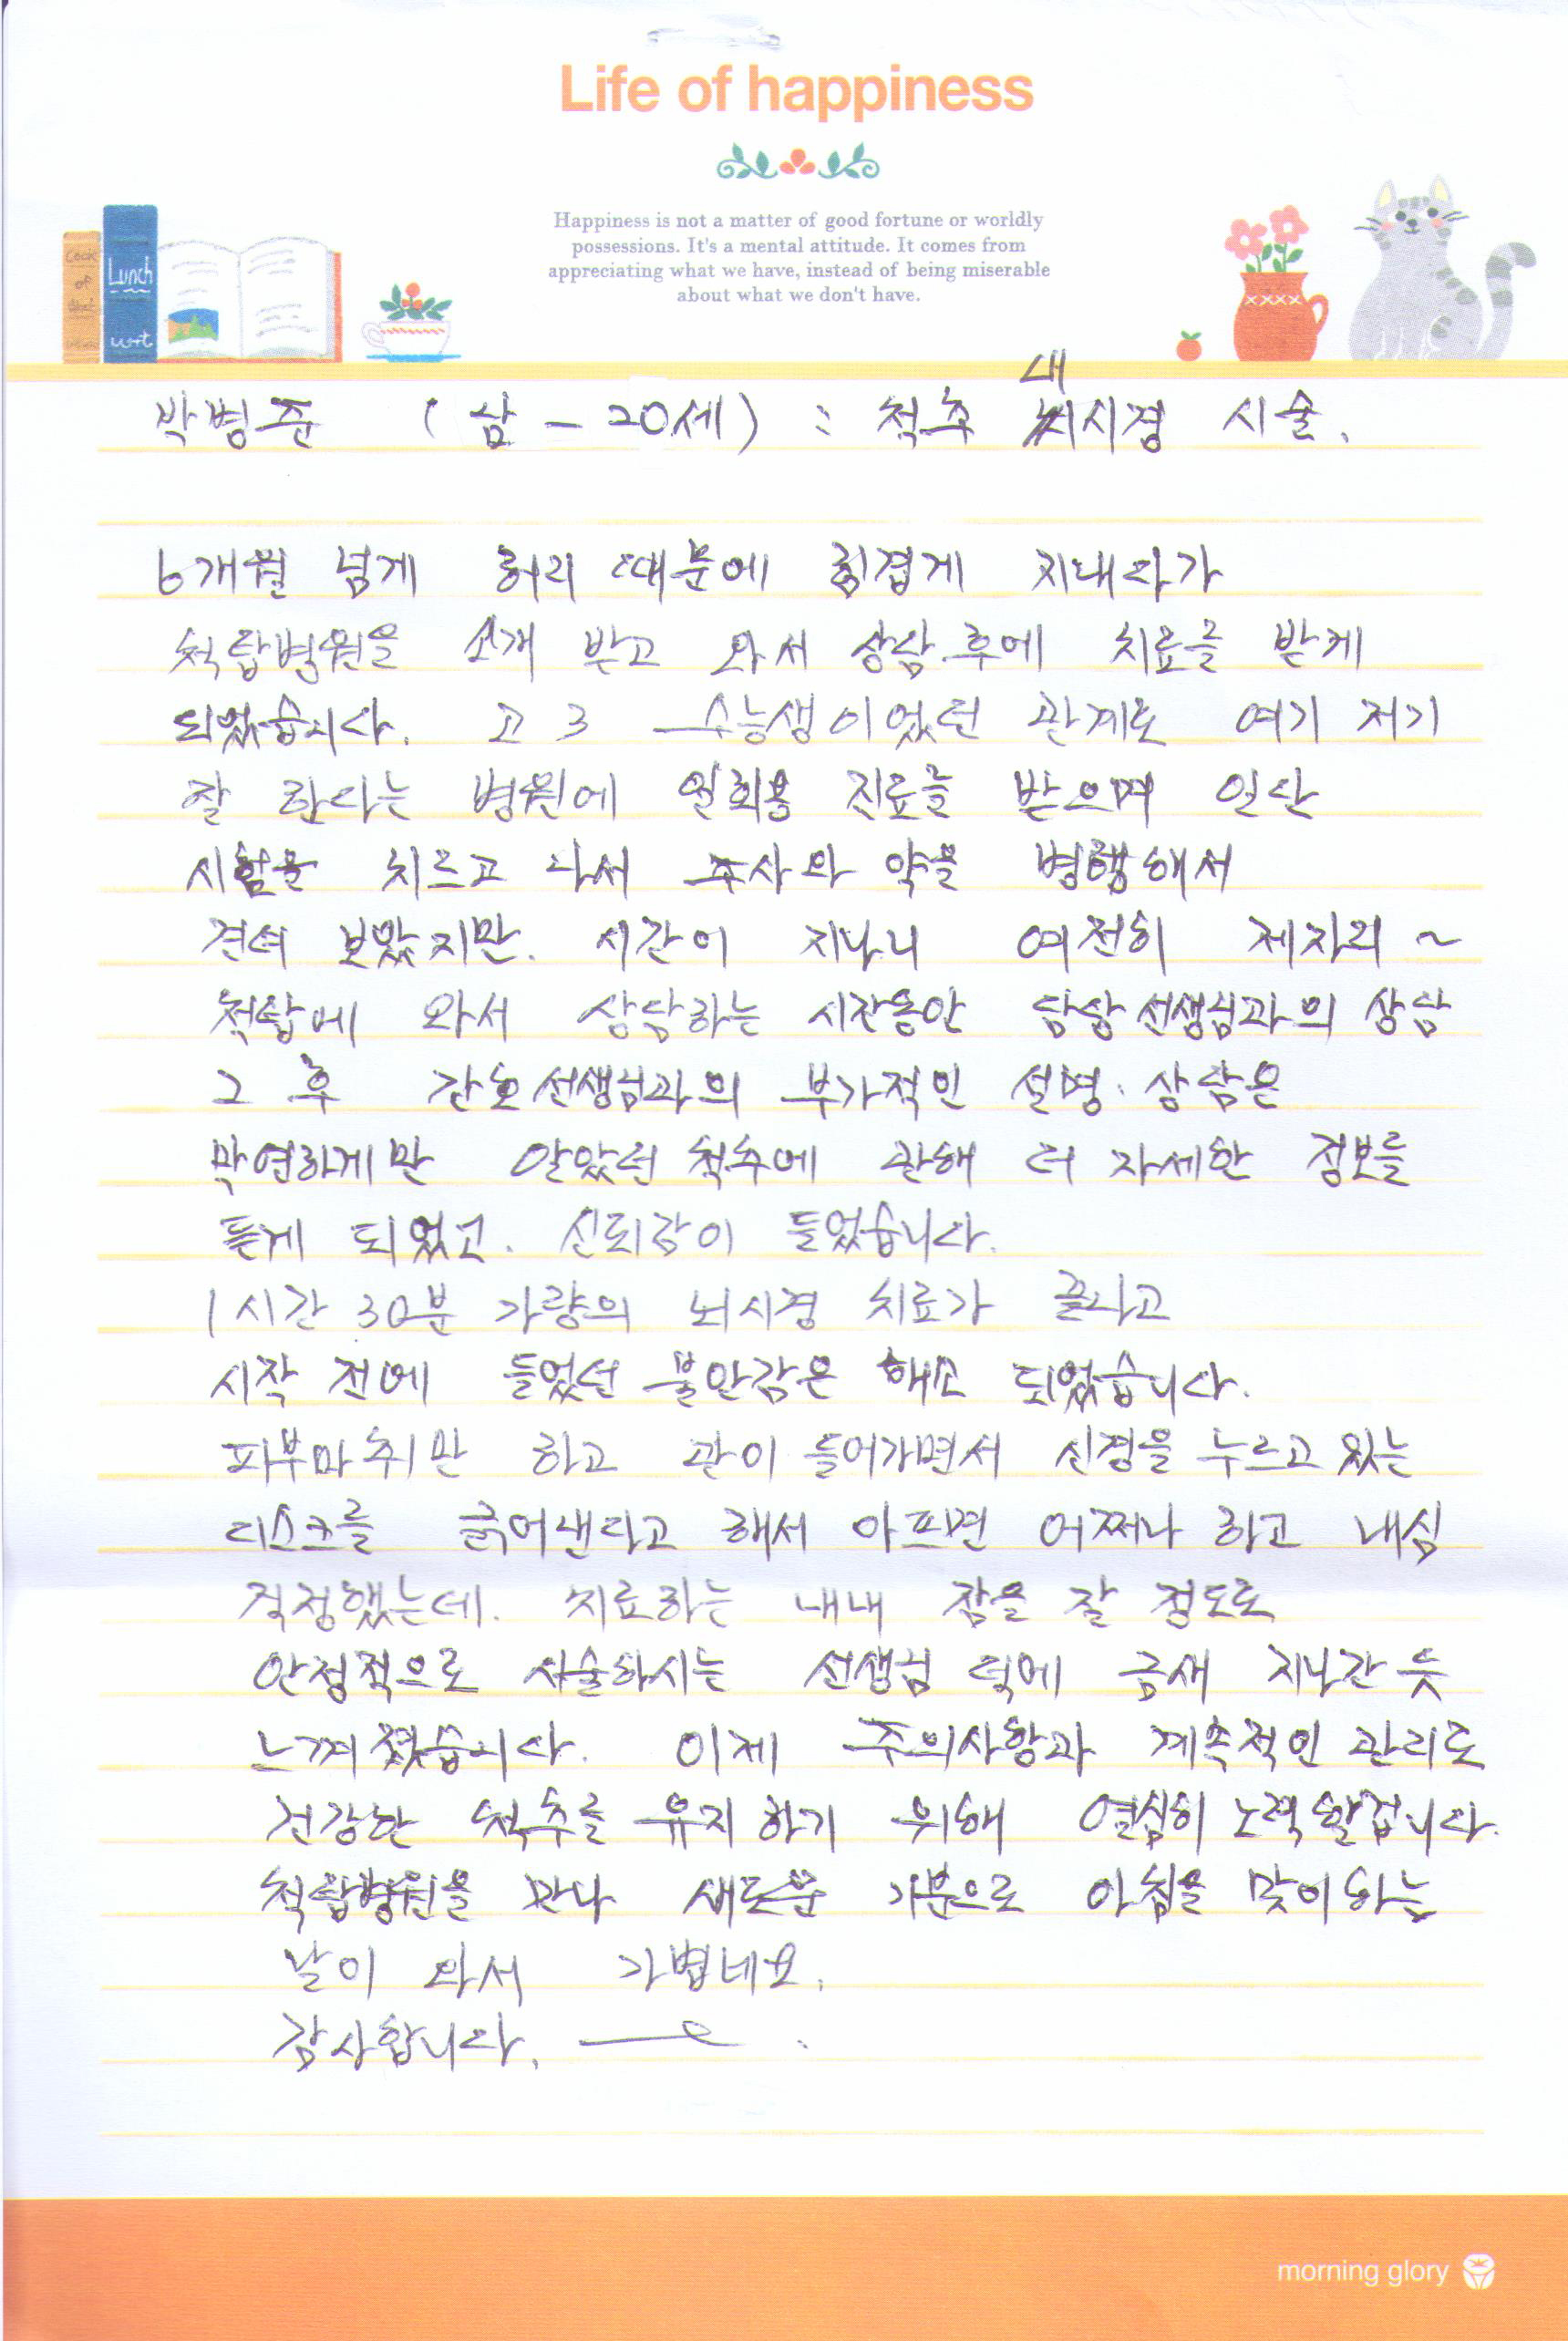 Life of happiness
Happiness is not a matter of good fortune or worldly
possessions. It's a mental attitude. It comes from
appreciating what we have, instead of being miserable
about what we don't have.
Lunch
내
박병준 (남 - 20세) : 척추 시경 시술.
6개월 넘게 허리 때문에 힘겹게 지내다가
척탑병원을 소개 받고 와서 상담 후에 치료를 받게
되었습니다. 고3 수능생이었던 관계로 여기 저기
잘 한다는 병원에 일회용 진료를 받으며 일단
시험을 치르고 나서 주사와 약을 병행해서
견뎌 보았지만. 시간이 지나니 여전히 제자리 ~
척탑에 와서 상담하는 시간동안 담당 선생님과의 상담
그 후 간호선생님과의 부가적인 설명·상담은
막연하게만 알았던 척추에 관해 더 자세한 정보를
듣게 되었고. 신뢰감이 들었습니다.
1시간 30분 가량의 뇌시경 치료가 끝나고
시작 전에 들었던 불안감은 해소 되었습니다.
피부마취만 하고 관이 들어가면서 신경을 누르고 있는
디스크를 긁어낸다고 해서 아프면 어쩌나 하고 내심
걱정했는데. 치료하는 내내 잠을 잘 정도로
안정적으로 시술하시는 선생님 덕에 금새 지나간 듯
느껴졌습니다. 이제 주의사항과 계속적인 관리로
건강한 척추를 유지하기 위해 열심히 노력할겁니다.
척탑병원을 만나 새로운 기분으로 아침을 맞이하는
날이 와서 가볍네요.
감사합니다.
morning glory